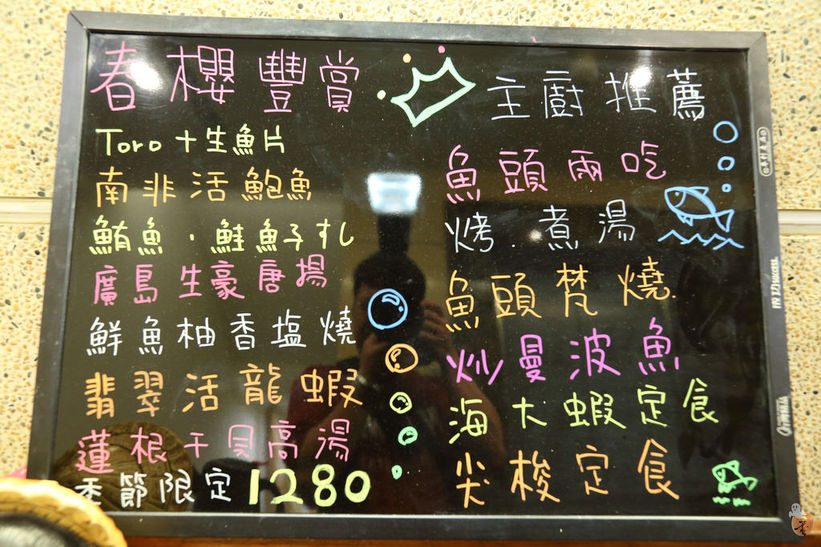 春櫻豐賞
Toro+生魚片
南非活鮑魚
鮪魚·鮭魚子札
廣島生豪唐揚
鮮魚柚香塩燒
翡翠活龍蝦
蓮根干貝高湯
季節限定1280
主廚推薦
魚頭兩吃
烤.煮湯
魚頭梵燒.
炒曼波魚
海大蝦定食
尖梭定食
成功success